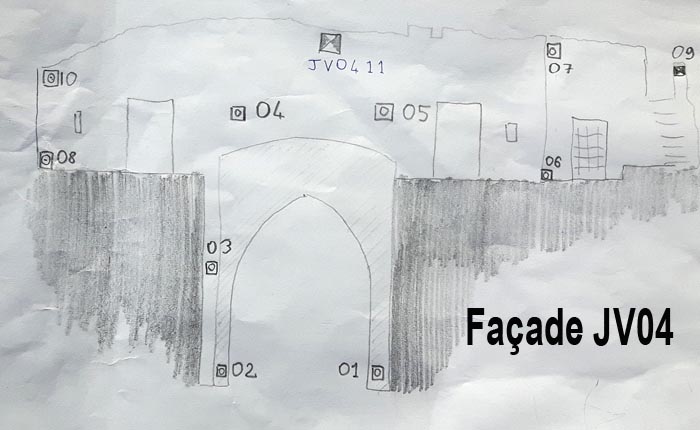 JV04 11
09
07
10
04
05
08
06
03
02
01
Façade JV04